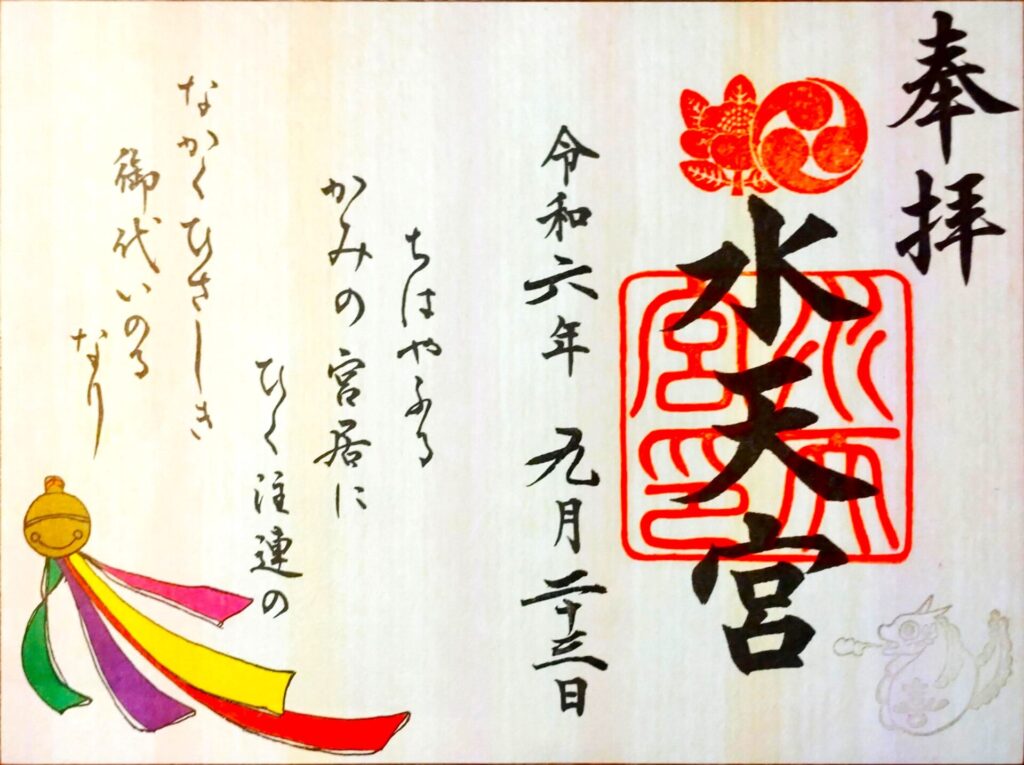 奉拝
水天宮
水天宮印
令和六年 九月二十三日
ちはやふる
かみの宮居に
ひく注連の
なかくひさしき
御代いのる
なり